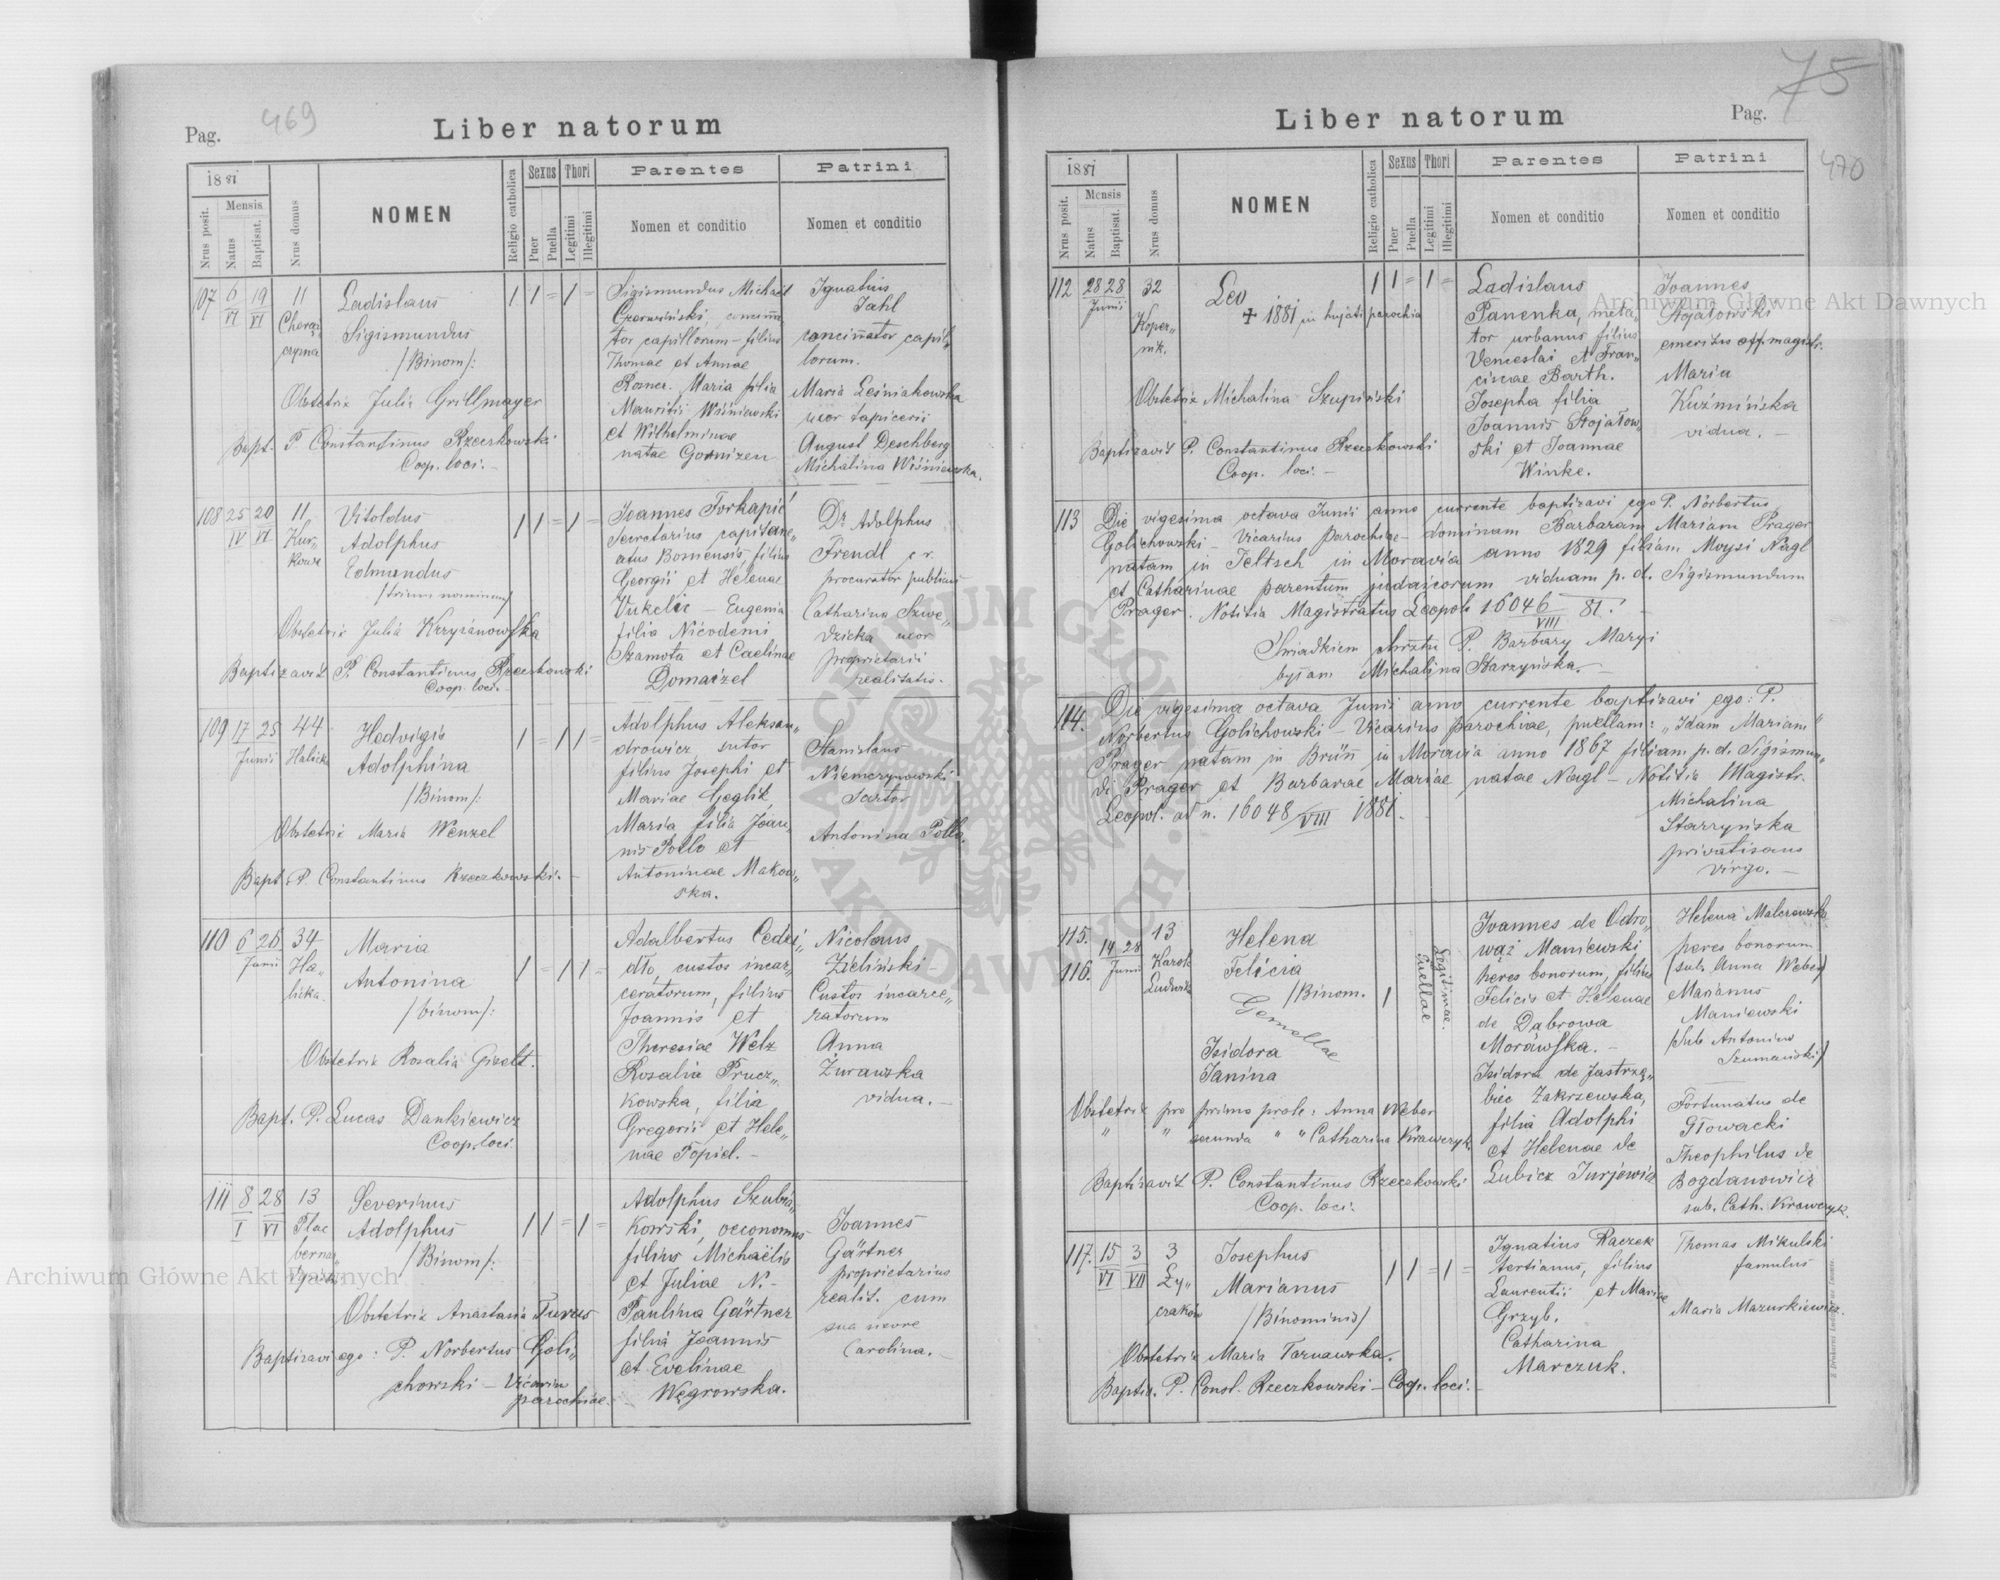 469
Pag.
Liber natorum
1881
Mensis
Nrus posit.
Natus
Baptisat.
Nrus domus
NOMEN
Religio catholica
Sexus
Puer
Puella
Thori
Legitimi
Illegitimi
Parentes
Nomen et conditio
Patrini
Nomen et conditio
107 6/VI 19/VI 11
Ladislaus
Sigismundus
/Binom/:
1 1 = 1 =
Obstetrix Julia Grillmayer
Bapt. P. Constantinus Rzeczkowski
Coop. loci.-
Sigismundus Michael
Czerwiński, concinna
tor capillorum - filius
Thomae et Annae
Rosner. Maria filia
Mauritii Wiśniewski
et Wilhelminae
natae Gornizen
Ignatius
Jahl
concinnator capil„
lorum.
Maria Leśniakowska
uxor tapicerii
August Deschberg
Michalina Wiśniewska.
108 25/IV 20/VI 11
Kur„
kowa
Vitoldus
Adolphus
Edmundus
/trium nominum/
1 1 = 1 =
Obstetrix Julia Krzyżanowska
Baptizavit P. Constantinus Rzeczkowski
Coop. loci.-
Joannes Forkapić
Secretarius capitane„
atus Bomensis filius
Georgii et Helenae
Vukelic - Eugenia
filia Nicodemi
Szamota et Caelinae
Domaizel
Dr Adolphus
Frendl cr.
procurator publicus
Catharina Szwe„
dzicka uxor
proprietarii
realitatis.-
109 17 25 Junii 44
Halicka
Hedvigis
Adolphina
/Binom/:
1 = 1 1 =
Obstetrix Maria Wenzel
Bapt. P. Constantinus Rzeczkowski.-
Adolphus Aleksan„
drowicz sutor
filius Josephi et
Mariae Geglik
Maria filia Joan„
nis Pollo et
Antoninae Makow„
ska.
Stanislaus
Niemczynowski
Sartor
Antonina Pollo
110 6 26 Junii 34
Ha„
licka.
Maria
Antonina
/binom/:
1 = 1 1 =
Obstetrix Rosalia Gizelt.
Bapt. P. Lucas Dankiewicz
Coop. loci
Adalbertus Cedzi„
dło, custos incar„
ceratorum, filius
Joannis et
Theresiae Welz
Rosalia Prucz„
kowska, filia
Gregorii et Hele„
nae Topiel.-
Nicolaus
Zieliński -
Custos incarce„
ratorum
Anna
Żurawska
vidua.-
111 8/I 28/VI 13
Severinus
Adolphus
/Binom/:
1 1 = 1 =
Obstetrix Anastasia Turus
Baptizavi ego: P. Norbertus Goli„
chowski - Vicarius
parochiae.
Adolphus Szubia„
kowski, oeconomus
filius Michaëlis
et Juliae N.-
Paulina Gärtner
filia Joannis
et Evelinae
Węgrowska.
Joannes
Gärtner
proprietarius
realit. cum
sua uxore
Carolina.-
75
Liber natorum
Pag.
470
1881
Mensis
Nrus posit.
Natus
Baptisat.
Nrus domus
NOMEN
Religio catholica
Sexus
Puer
Puella
Thori
Legitimi
Illegitimi
Parentes
Nomen et conditio
Patrini
Nomen et conditio
112 28 28 Junii 32
Koper„
nik.
Leo
✝ 1881 in hujati parochia
1 1 = 1 =
Obstetrix Michalina Szupiński
Baptizavit P. Constantinus Rzeczkowski
Coop. loci.-
Ladislaus
Panenka, meta„
tor urbanus filius
Venceslai et Fran„
ciscae Barth.
Josepha filia
Joannis Stojałow„
ski et Joannae
Winke.
Joannes
Stojałowski
emeritus off. magistr.
Maria
Kuźmińska
vidua.-
113 Die vigesima octava Junii anno currente baptizavi ego P. Norbertus
Golichowski - Vicarius parochiae - dominam Barbaram Mariam Prager
natam in Teltsch in Moravia anno 1829 filiam Moysi Nagl
et Catharinae parentum judaicorum viduam p. d. Sigismundum
Prager. Notitia Magistratus Leopol. 16046/VIII 81.
Świadkiem chrztu P. Barbary Maryi
byłam Michalina Starzyńska.-
114. Die vigesima octava Junii anno currente baptizavi ego: P.
Norbertus Golichowski - Vicarius parochiae, puellam: "Idam Mariam"
Prager natam in Brünn in Moravia anno 1867 filiam p. d. Sigismun„
di Prager et Barbarae Mariae natae Nagl - Notitia Magistr.
Leopol. ad n. 16048/VIII 1881.
Michalina
Starzyńska
privatisans
virgo.-
115.
116.
14 28 Junii 13
Karola
Ludwika
Helena
Felicia
/Binom.
Gemellae
Isidora
Janina
1
Puellae
Legitimae.
Obstetrix pro prima prole: Anna Weber
" " secunda " " Catharina Krawczyk.
Baptizavit P. Constantinus Rzeczkowski
Coop. loci.
Joannes de Odro„
wąż Maniewski
heres bonorum, filius
Felicis et Helenae
de Dąbrowa
Morawska.-
Isidora de Jastrzę„
biec Zakrzewska,
filia Adolphi
et Helenae de
Lubicz Jurjewicz
Helena Malczewska
heres bonorum
(sub. Anna Weber)
Marianus
Maniewski
/sub Antonino
Szumański/
Fortunatus de
Głowacki
Theophilus de
Bogdanowicz
sub. Cath. Krawczyk.
117. 15/VI 3/VII 3
Ły„
czaków
Josephus
Marianus
/Binominis/
1 1 = 1 =
Obstetrix Maria Tarnawska.
Baptiz. P. Const. Rzeczkowski - Coop. loci.-
Ignatius Raczek
tertianus, filius
Laurentii et Mariae
Grzyb.
Catharina
Marczuk.
Thomas Mikulski
famulus
Maria Mazurkiewicz.
Archiwum Główne Akt Dawnych
Archiwum Główne Akt Dawnych
ARCHIWUM GŁÓWNE AKT DAWNYCH